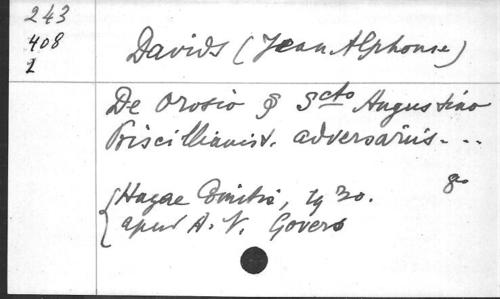 243
408
1
Davids (Jean Alphonse)
De Orosio & Scto Augustino
Priscillianist. adversariis...
Hagae Comitis, 1930. 8o
apud A. N. Govers